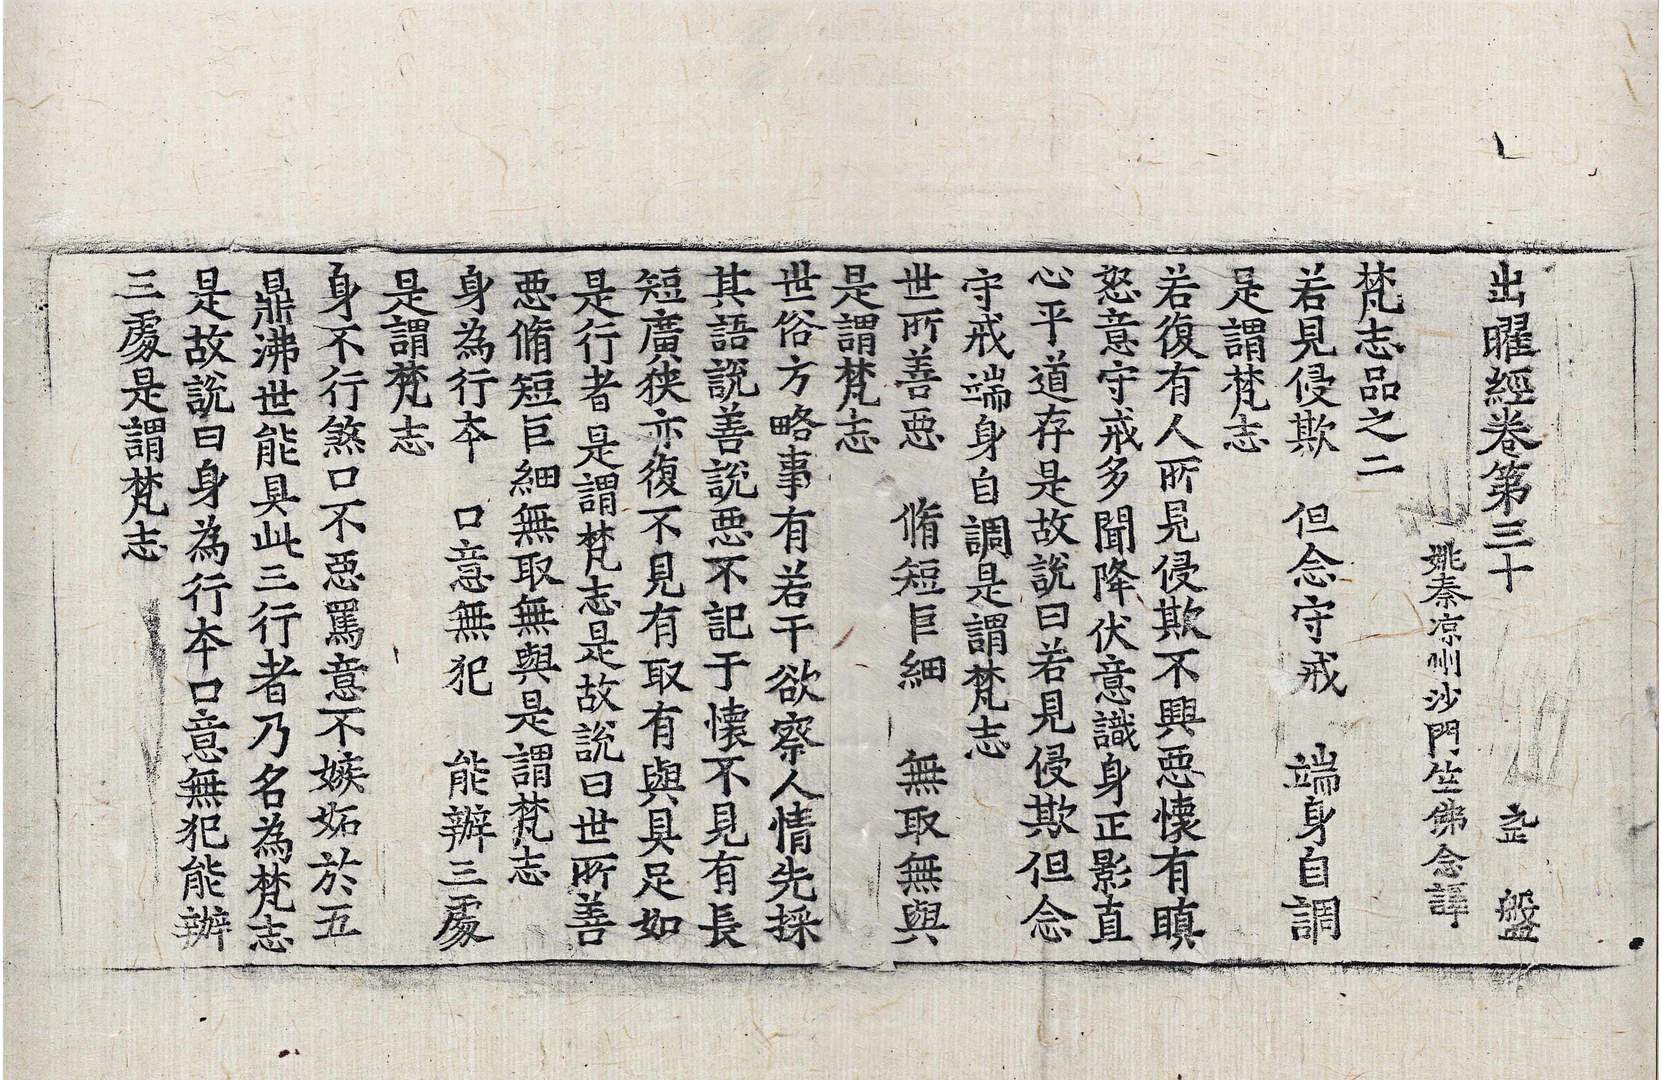 出曜經卷第三十 盤
姚秦凉州沙門竺佛念譯
梵志品之二
若見侵欺 但念守戒 端身自調
是謂梵志
若復有人所見侵欺不興惡懷有瞋
怒意守戒多聞降伏意識身正影直
心平道存是故說曰若見侵欺但念
守戒端身自調是謂梵志
世所善惡 脩短巨細 無取無與
是謂梵志
世俗方略事有若干欲察人情先採
其語說善說惡不記于懷不見有長
短廣狹亦復不見有取有與具足如
是行者是謂梵志是故說曰世所善
惡脩短巨細無取無與是謂梵志
身為行本 口意無犯 能辦三處
是謂梵志
身不行煞口不惡罵意不嫉妬於五
鼎沸世能具此三行者乃名為梵志
是故說曰身為行本口意無犯能辦
三處是謂梵志